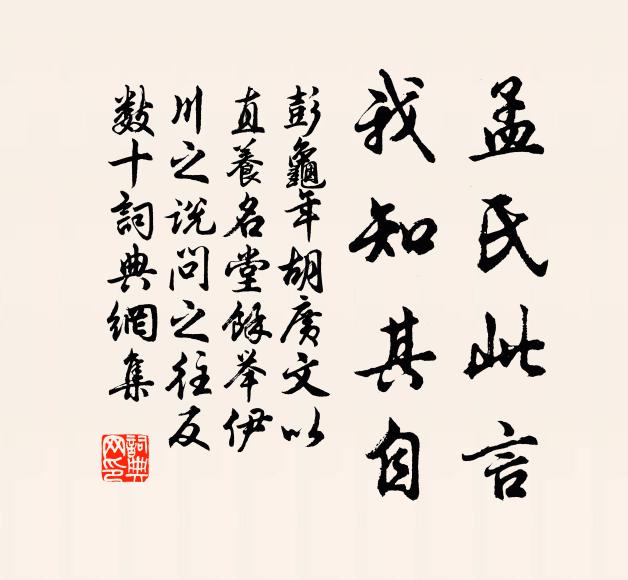 孟氏此言
我知其自
彭龜年胡廣文以
直養名堂餘举伊
川之说问之往反
数十詞典網集
詞典网印